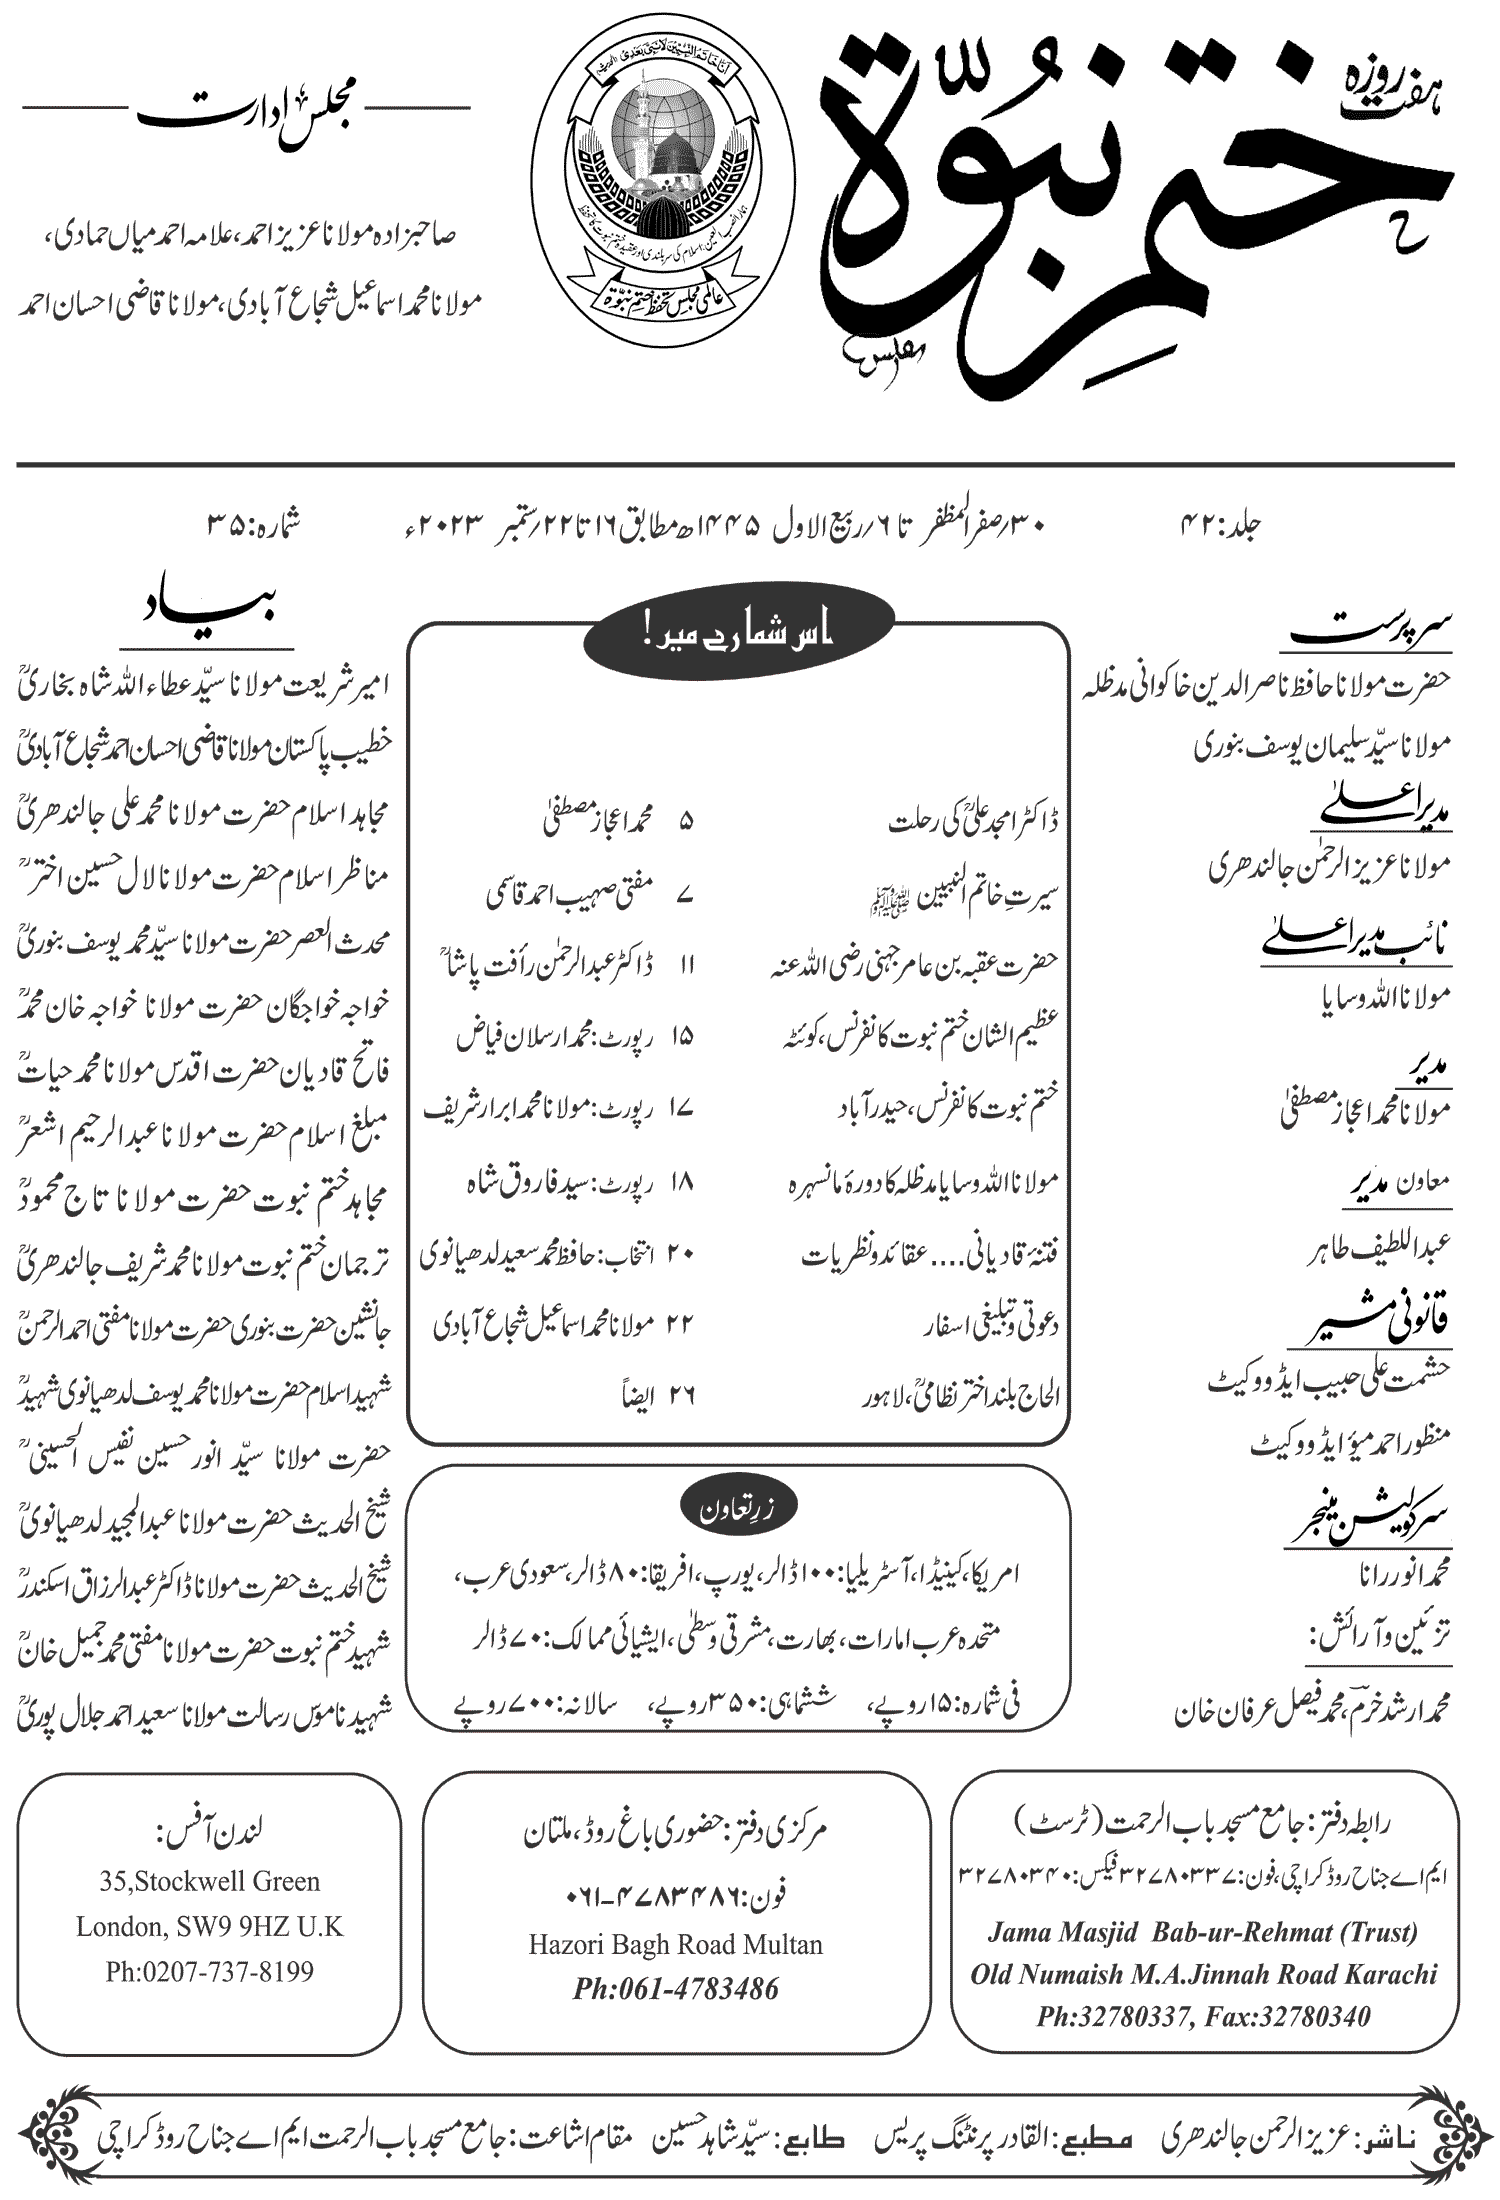 ہفت روزہ
ختم نبوّۃ
اَنَا خَاتَمُ النَّبِیّٖنَ لَا نَبِیَّ بَعْدِیْ
عالمی مجلس تحفظ ختم نبوّۃ
مجلس ادارت
صاحبزادہ مولانا عزیز احمد، علامہ احمد میاں حمادی،
مولانا محمد اسماعیل شجاع آبادی، مولانا قاضی احسان احمد
جلد: ۴۲
۳۰؍صفر المظفر تا ۶؍ربیع الاول ۱۴۴۵ھ مطابق ۱۶ تا ۲۲؍ستمبر ۲۰۲۳ء
شمارہ: ۳۵
سرپرست
حضرت مولانا حافظ ناصر الدین خاکوانی مدظلہ
مولانا سیّد سلیمان یوسف بنوری
مدیر اعلیٰ
مولانا عزیز الرحمٰن جالندھری
نائب مدیر اعلیٰ
مولانا اللہ وسایا
مدیر
مولانا محمد اعجاز مصطفیٰ
معاون مدیر
عبداللطیف طاہر
قانونی مشیر
حشمت علی حبیب ایڈووکیٹ
منظور احمد میؤ ایڈووکیٹ
سرکولیشن منیجر
محمد انور رانا
تزئین و آرائش:
محمد ارشد خرم، محمد فیصل عرفان خان
اس شمارے میں!
ڈاکٹر امجد علیؒ کی رحلت ۵ محمد اعجاز مصطفیٰ
سیرتِ خاتم النبیین ﷺ ۷ مفتی صہیب احمد قاسمی
حضرت عقبہ بن عامر جہنی رضی اللہ عنہ ۱۱ ڈاکٹر عبدالرحمٰن رأفت پاشاؒ
عظیم الشان ختم نبوت کانفرنس، کوئٹہ ۱۵ رپورٹ: محمد ارسلان فیاض
ختم نبوت کانفرنس، حیدرآباد ۱۷ رپورٹ: مولانا محمد ابرار شریف
مولانا اللہ وسایا مدظلہ کا دورۂ مانسہرہ ۱۸ رپورٹ: سید فاروق شاہ
فتنۂ قادیانی.... عقائد و نظریات ۲۰ انتخاب: حافظ محمد سعید لدھیانوی
دعوتی و تبلیغی اسفار ۲۲ مولانا محمد اسماعیل شجاع آبادی
الحاج بلند اختر نظامیؒ، لاہور ۲۶ ایضاً
زرِتعاون
امریکا، کینیڈا، آسٹریلیا: ۱۰۰ ڈالر، یورپ، افریقا: ۸۰ ڈالر، سعودی عرب،
متحدہ عرب امارات، بھارت، مشرقی وسطیٰ، ایشیائی ممالک: ۷۰ ڈالر
فی شمارہ: ۱۵ روپے، ششماہی: ۳۵۰ روپے، سالانہ: ۷۰۰ روپے
بیاد
امیر شریعت مولانا سیّد عطاء اللہ شاہ بخاریؒ
خطیب پاکستان مولانا قاضی احسان احمد شجاع آبادیؒ
مجاہد اسلام حضرت مولانا محمد علی جالندھریؒ
مناظر اسلام حضرت مولانا لال حسین اخترؒ
محدث العصر حضرت مولانا سیّد محمد یوسف بنوریؒ
خواجہ خواجگان حضرت مولانا خواجہ خان محمدؒ
فاتح قادیان حضرت اقدس مولانا محمد حیاتؒ
مبلغ اسلام حضرت مولانا عبدالرحیم اشعرؒ
مجاہد ختم نبوت حضرت مولانا تاج محمودؒ
ترجمان ختم نبوت مولانا محمد شریف جالندھریؒ
جانشین حضرت بنوری حضرت مولانا مفتی احمد الرحمنؒ
شہید اسلام حضرت مولانا محمد یوسف لدھیانوی شہیدؒ
حضرت مولانا سیّد انور حسین نفیس الحسینیؒ
شیخ الحدیث حضرت مولانا عبدالمجید لدھیانویؒ
شیخ الحدیث حضرت مولانا ڈاکٹر عبدالرزاق اسکندرؒ
شہید ختم نبوت حضرت مولانا مفتی محمد جمیل خانؒ
شہید ناموس رسالت مولانا سعید احمد جلال پوریؒ
رابطہ دفتر: جامع مسجد باب الرحمت (ٹرسٹ)
ایم اے جناح روڈ کراچی، فون: ۳۲۷۸۰۳۳۷ فیکس: ۳۲۷۸۰۳۴۰
Jama Masjid Bab-ur-Rehmat (Trust)
Old Numaish M.A.Jinnah Road Karachi
Ph:32780337, Fax:32780340
مرکزی دفتر: حضوری باغ روڈ، ملتان
فون: ۰۶۱-۴۷۸۳۴۸۶
Hazori Bagh Road Multan
Ph:061-4783486
لندن آفس:
35,Stockwell Green
London, SW9 9HZ U.K
Ph:0207-737-8199
ناشر: عزیز الرحمن جالندھری مطبع: القادر پرنٹنگ پریس طابع: سیّد شاہد حسین مقام اشاعت: جامع مسجد باب الرحمت ایم اے جناح روڈ کراچی